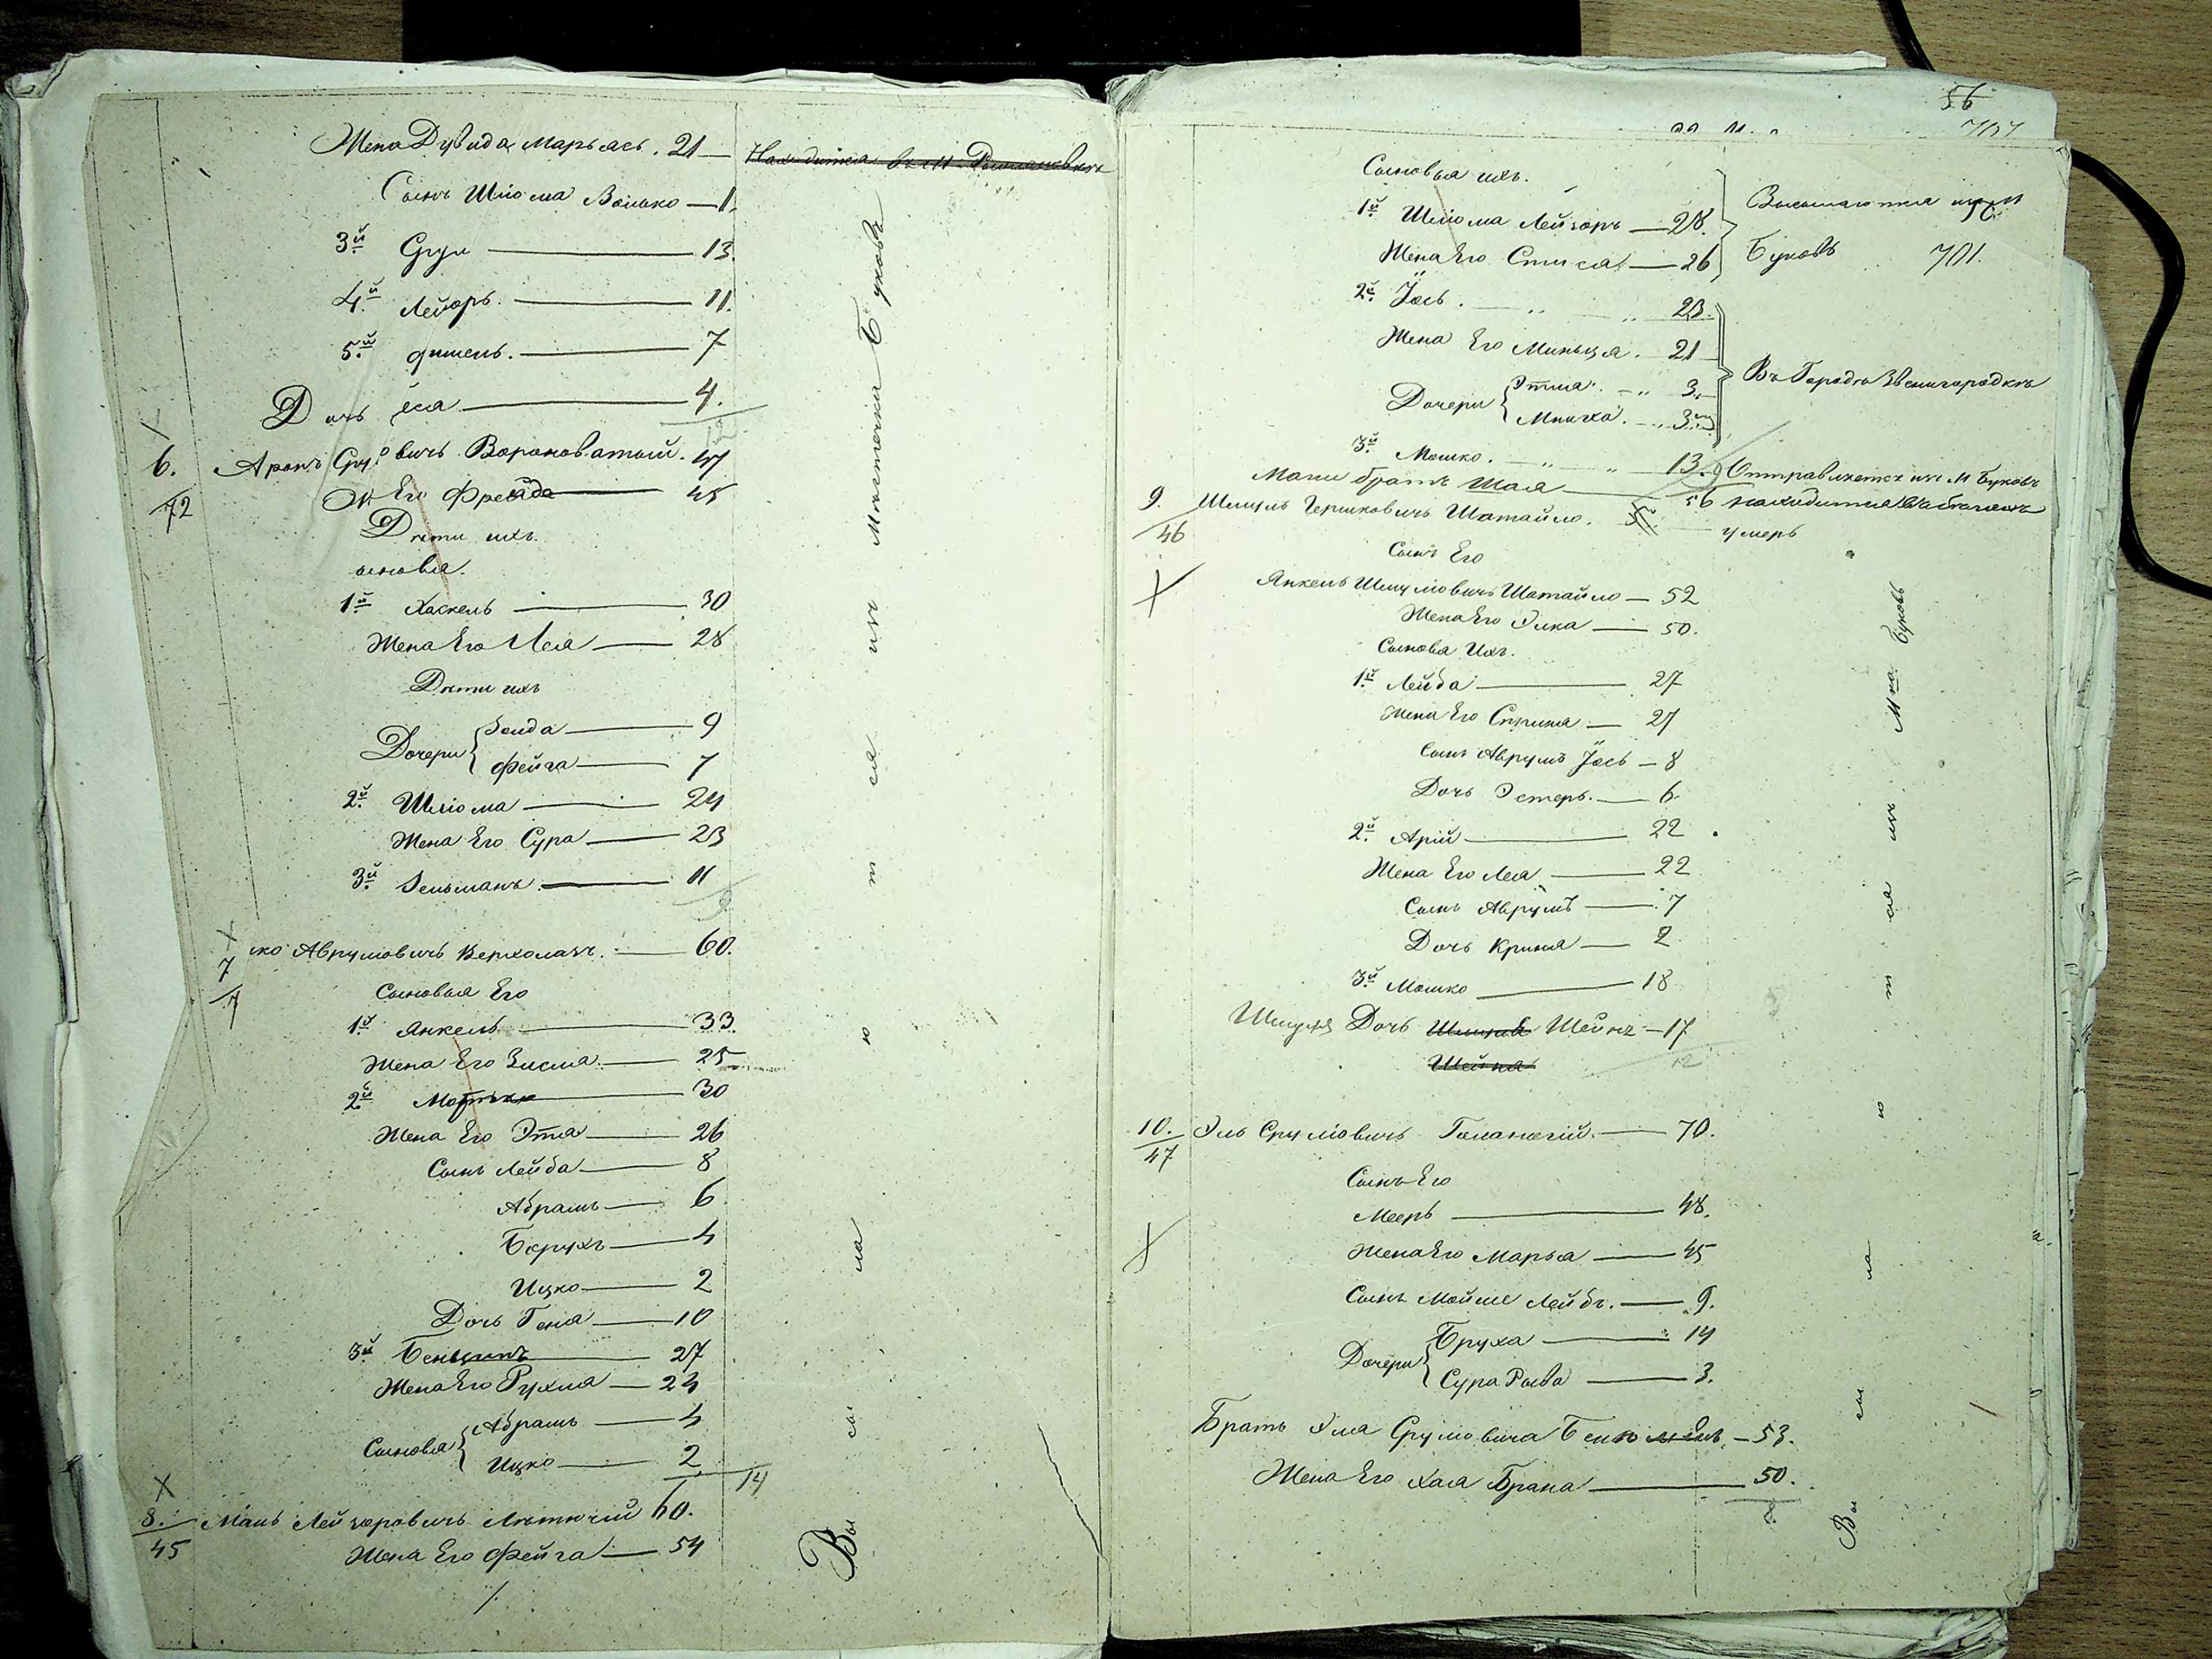 Жена Дувида Марьясъ. 21 — Находится въ м.
Сынъ Шлiома Волько — 1.
3й Сруль — 13.
4й Лейзоръ. — 11.
5й Фишель. — 7
Дочь Еса — 4.
6. Аронъ Сруловичъ Вороноватый. 47
72
Его Фрейда — 45
Дѣти ихъ
ыновья.
1й Хаскель — 30
Жена Его Лея — 28
Дѣти ихъ
Дочери { Зелда — 9
Фейга — 7
2й Шлiома — 24
Жена Его Сура — 23
3й Зельманъ — 11
7 ко Аврумовичъ Верхолазъ. — 60.
7
Сыновья Его
1й Янкель — 33.
Жена Его Зисля — 25
2й Мотько — 30
Жена Его Этя — 26
Сынъ Лейба — 8
Абрамъ — 6
Борухъ — 4
Ицко — 2
Дочь Геня — 10
3й Бенцiонъ — 27
Жена Его Рухля — 24
Сыновья { Абрамъ — 4
Ицко — 2
14
8. Мань Лейзоровичъ Лѣтичій 60.
45
Жена Его Фейга — 54
Высылаются изъ Мѣстечка Букова
56
707
Сыновья ихъ.
1й Шлiома Лейзоръ — 28.
Жена Его — 26
Высылаются изъ М
Буковъ 701.
2й Iось. — 23.
Жена Его Миньця. 21
Дочери { Этля. — 3.
— 3
Въ Городѣ Звенигородкѣ
3й Мошко. — 13. Отправляется изъ М Буковъ
Мани братъ Шая — 56 находится
9. Шмуль Гершковичъ Шатайло. умеръ
46
Сынъ Его
Янкель Шмулiовичъ Шатайло — 52
Жена Его Элка — 50.
Сыновья Ихъ.
1й Лейба — 27
Жена Его Спринца — 27
Сынъ Аврумъ Iось — 8
Дочь Эстеръ. — 6.
2й Арiй — 22
Жена Его Лея — 22
Сынъ Аврумъ — 7
Дочь Криня — 2
3й Мошко — 18
Шмуля Дочь Шейна — 17
Шейна
12
10. Эль Срулiовичъ — 70.
47
Сынъ Его
Мееръ — 48.
Жена Его Марья — 45
Сынъ Мойше Лейбъ. — 9.
Дочери { Бруха — 14
Сура Рыва — 3.
Братъ Эля Срулiовича Бенюминъ — 53.
Жена Его Хая Брана — 50.
8
Высылаются изъ М-ка Буковъ